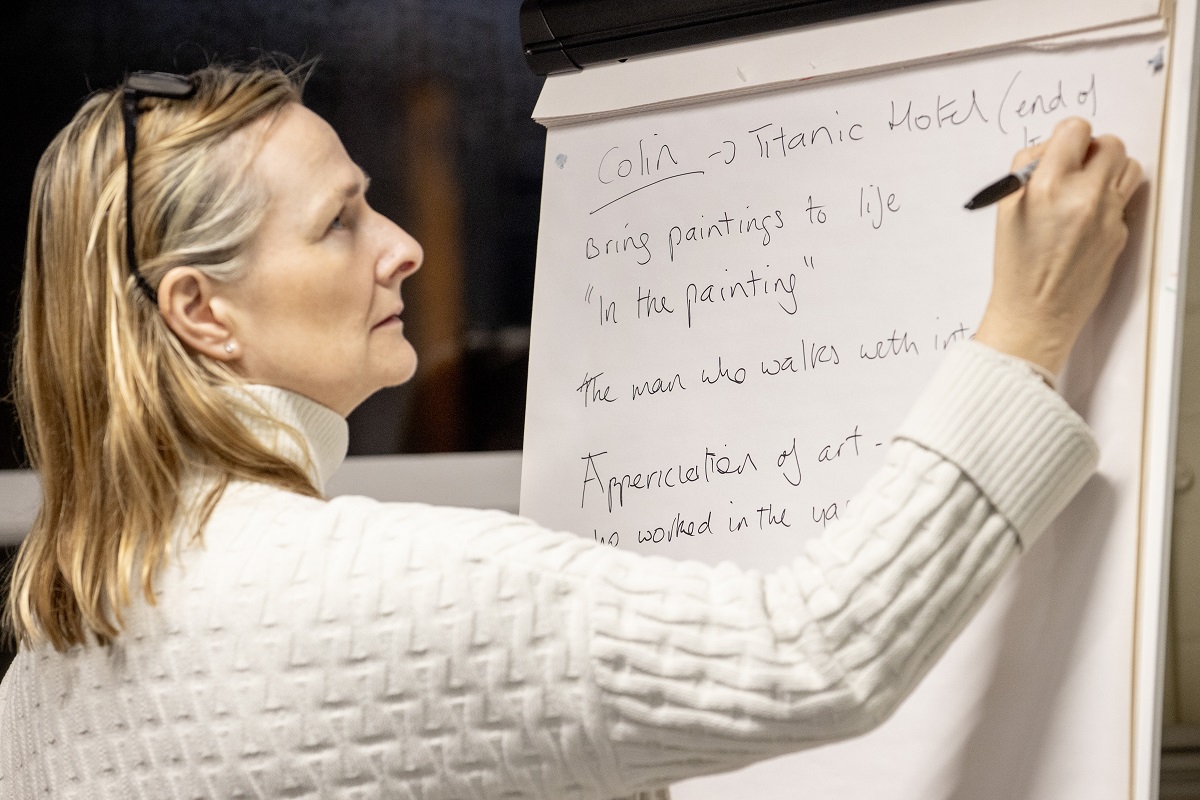 Colin → Titanic Hotel (end of
Bring paintings to life
"In the painting"
The man who walks with
Appericiation of art -
worked in the